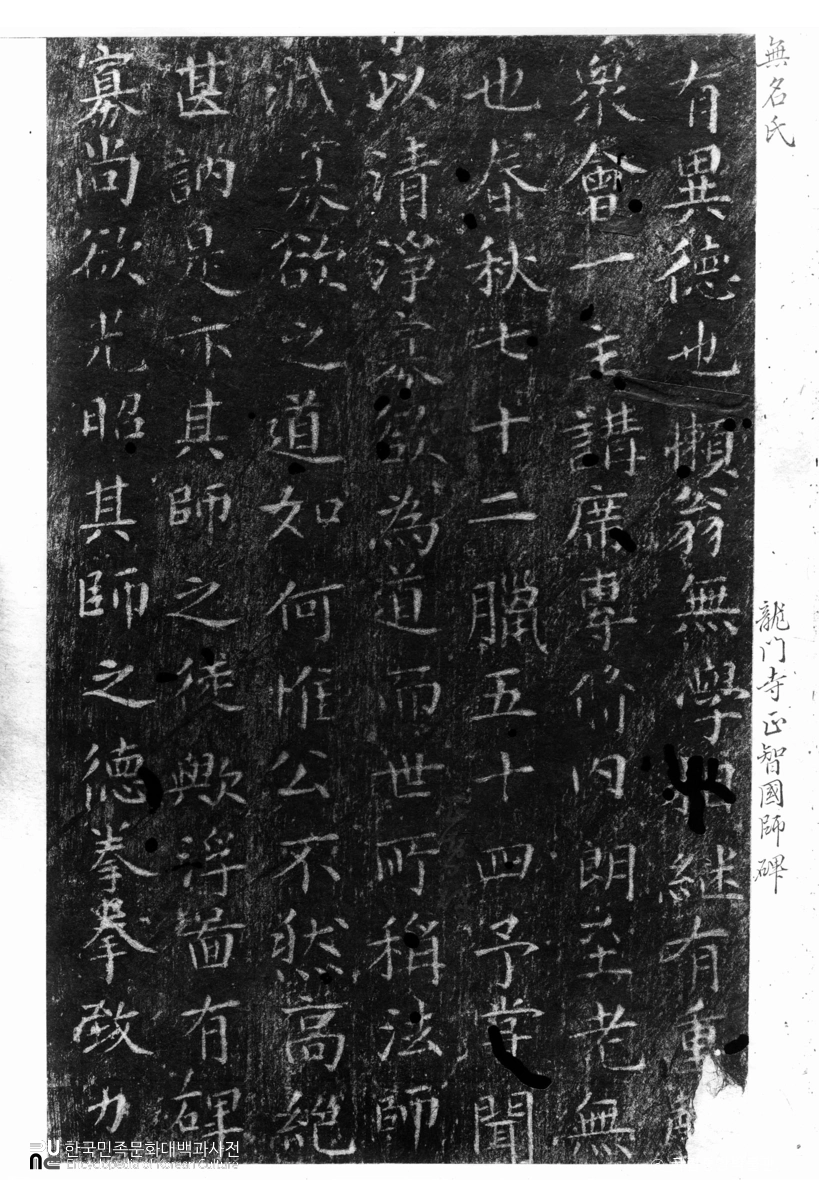 無名氏
龍门寺正智國師碑
有異德也懶翁無學相継有重
衆會一主講席專修内朗至老無
也春秋七十二臘五十四予甞聞
以清淨寡欲為道而世所稱法師
欲之道如何惟公不然高絶
甚訥是亦其師之徒歟浮啚有碑
寡尚欲光昭其師之德拳拳致力
한국민족문화대백과사전
Encyclopedia of Korean Culture